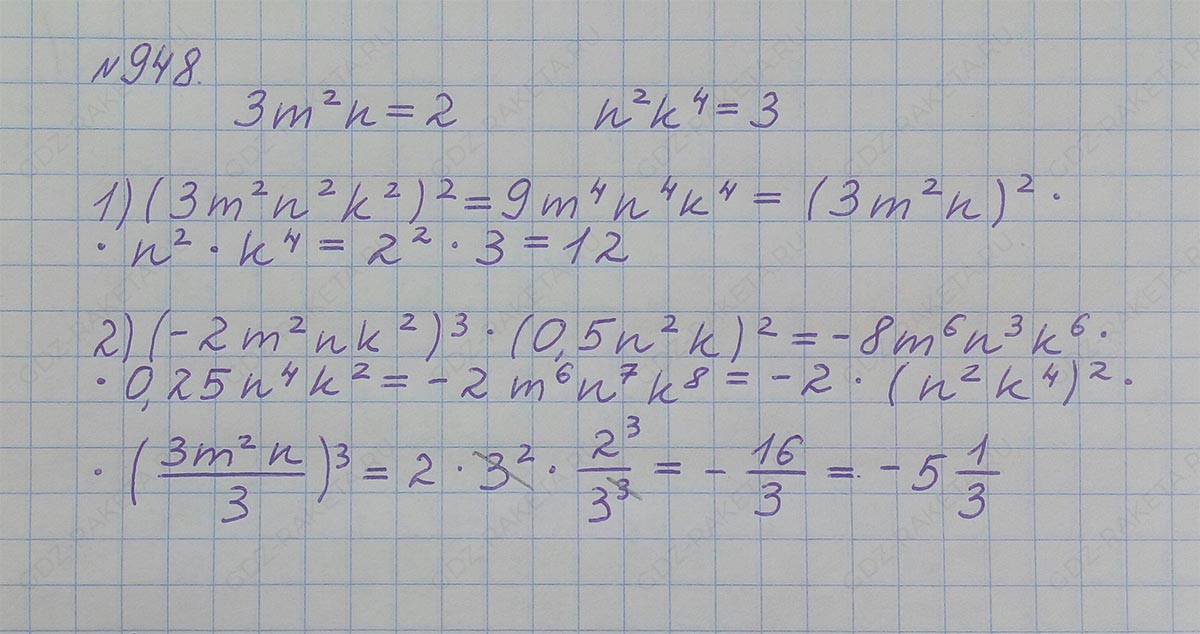 №948.
3m²n = 2 n²k⁴ = 3
1) (3m²n²k²)² = 9m⁴n⁴k⁴ = (3m²n)² ·
· n² · k⁴ = 2² · 3 = 12
2) (-2m²nk²)³ · (0,5n²k)² = -8m⁶n³k⁶ ·
· 0,25n⁴k² = -2m⁶n⁷k⁸ = -2 · (n²k⁴)² ·
· (3m²n/3)³ = 2 · 3² · 2³/3³ = - 16/3 = -5 1/3